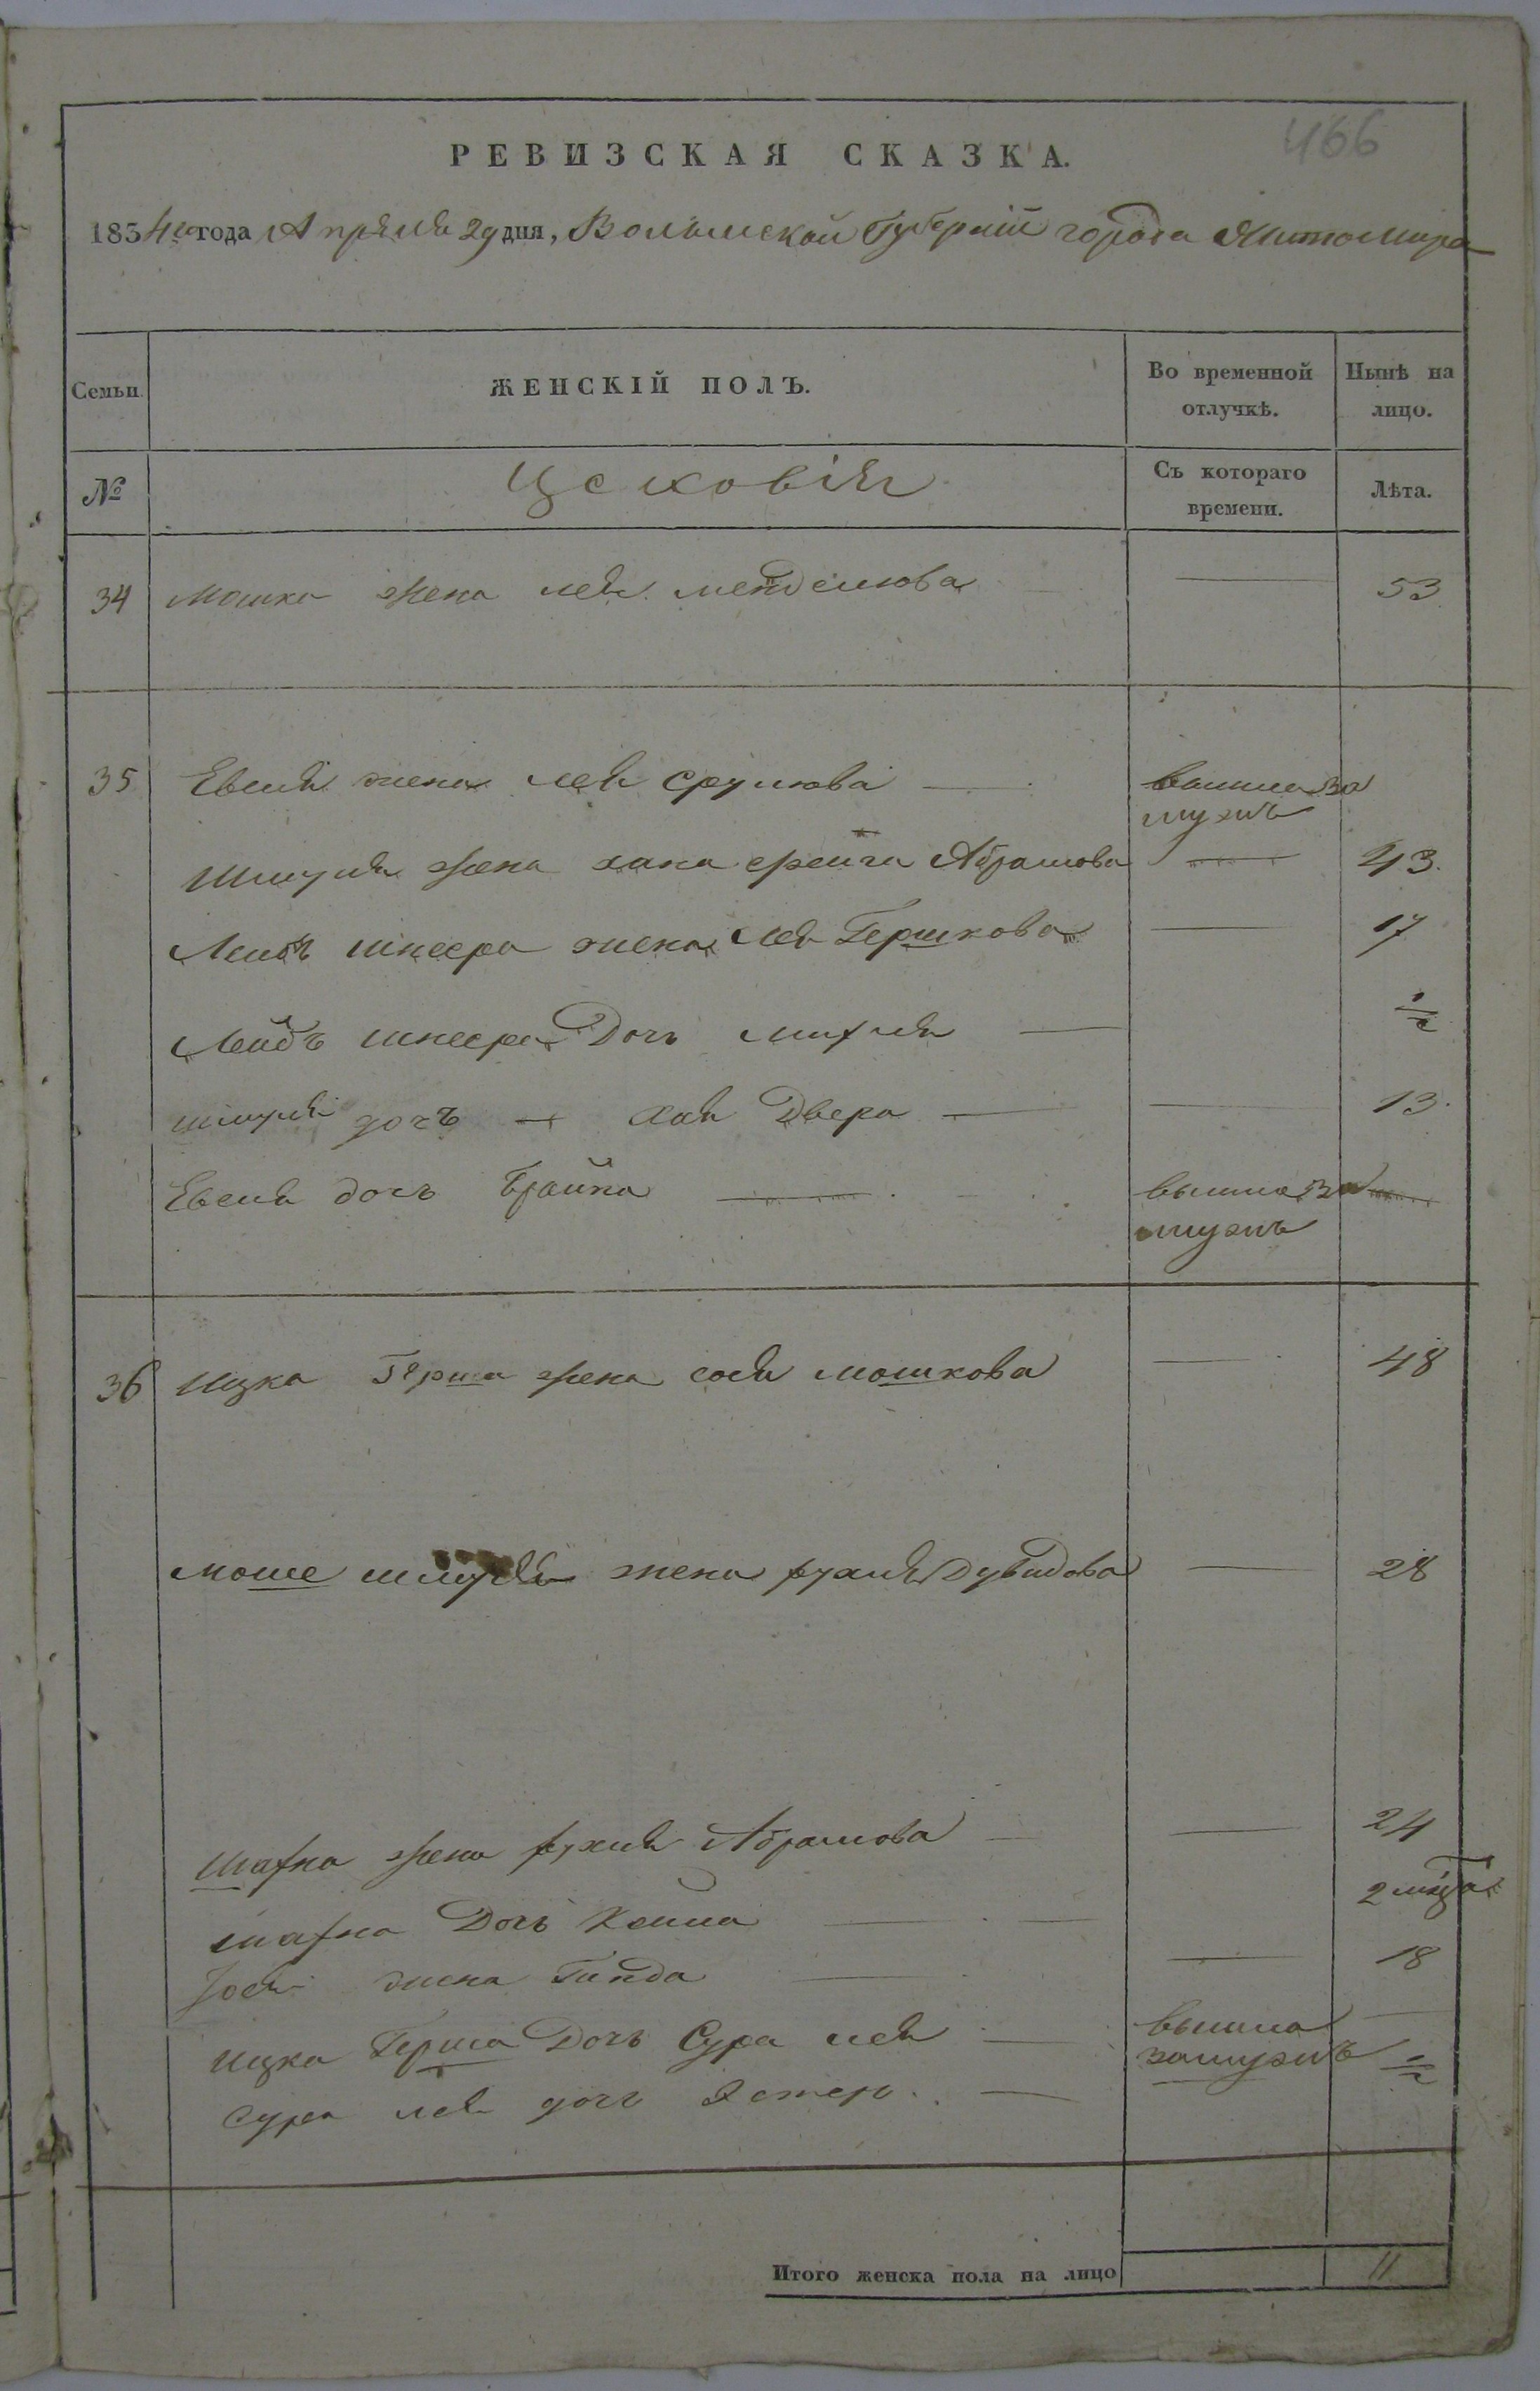 466
РЕВИЗСКАЯ СКАЗКА.
1854го года Апреля 29 дня, Волынской Губерніи города Житомира
Семьи ЖЕНСКІЙ ПОЛЪ. Во временной отлучкѣ. Нынѣ на лицо.
№ Съ котораго времени. Лѣта.
34 Мошка жена лея менделиова — 53
35 Евеля жена лея сруліова — вышла за мужъ
Шмуля жена хана Абрамова — 43.
Лейбъ шнеера жена лея Гершкова — 17
Лейбъ шнеера Дочь михля — 1/2
шмуля дочъ — хая Двера — 13.
Евеля дочь Брайна — вышла за мужъ
36 Ицка Герша жена сося мошкова — 48
моше шмуля жена рухля Дувидова — 28
Шахна жена рухля Абрамова — 24
шахна Дочь — 2 мѣца
Іося жена Гинда — 18
Ицка Герша Дочь Сура лея — вышла замужъ —
Сура лея дочь Эстер. — 1/2
Итого женска пола на лицо 11